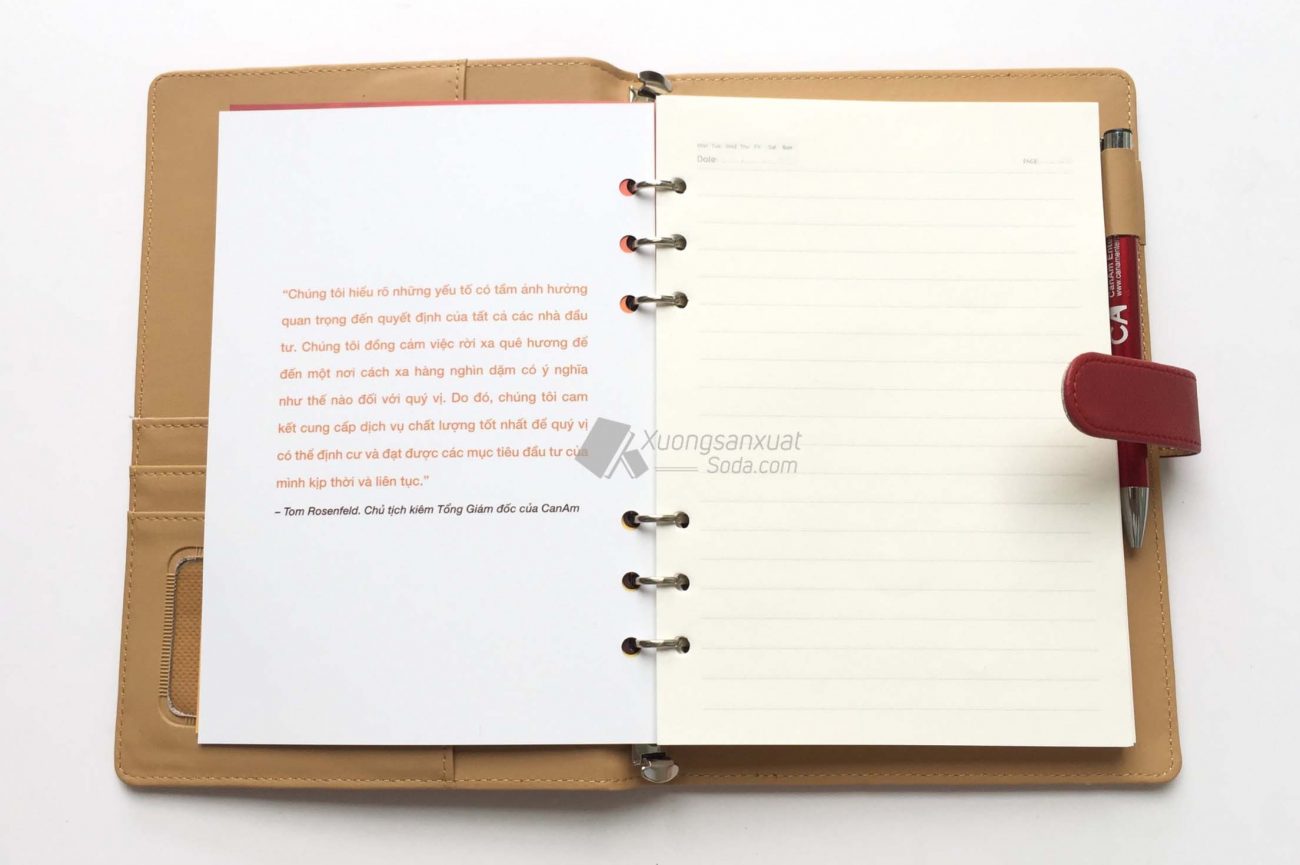 “Chúng tôi hiểu rõ những yếu tố có tầm ảnh hưởng
quan trọng đến quyết định của tất cả các nhà đầu
tư. Chúng tôi đồng cảm việc rời xa quê hương để
đến một nơi cách xa hàng nghìn dặm có ý nghĩa
như thế nào đối với quý vị. Do đó, chúng tôi cam
kết cung cấp dịch vụ chất lượng tốt nhất để quý vị
có thể định cư và đạt được các mục tiêu đầu tư của
mình kịp thời và liên tục.”
– Tom Rosenfeld. Chủ tịch kiêm Tổng Giám đốc của CanAm
Xuongsanxuat
Soda.com
Mon Tue Wed Thu Fri Sat Sun
Date:
PAGE:
CA
CanAm Ent
www.canamente